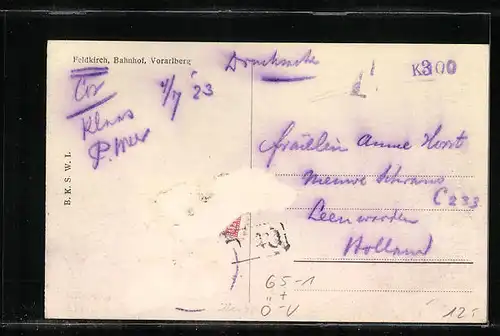 Feldkirch, Bahnhof, Vorarlberg
Drucksache
K300
Cor
1/7 23
Klaas
P. Mer
B. K. S. W. I.
Fräulein Anne Horst
Nieuwe Schrans
C 233
Leeuwarden
Holland
65-1
12-